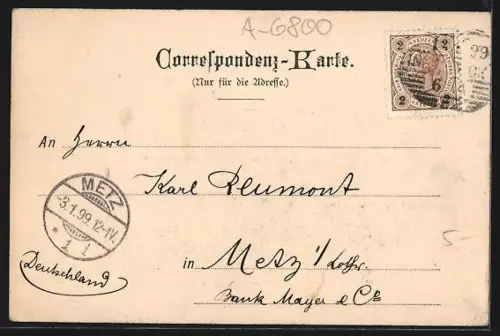 A-6800
Correspondenz-Karte.
(Nur für die Adresse.)
2 2
2 2
99
6
An Herrn
Karl Blumont
METZ
-3.1.99.12-1V.
* 1 i
in Metz i/ Lothr.
(Deutschland)
Bank Mayer & Co
5-